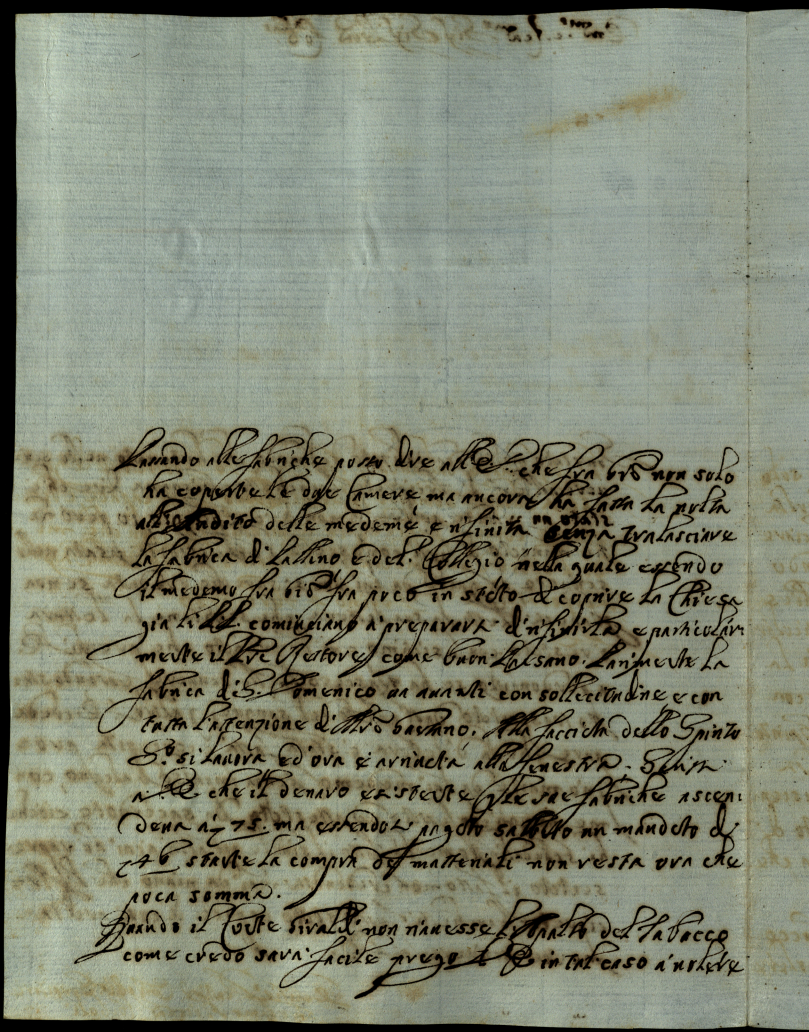 Passando alle fabriche posso dire all' che fra bre non solo
ha coperte le due Camere ma ancora ha fatta la volta
all'andito delle medeme e rifinita senza tralasciare
la fabrica di Latino e del Collegio nella quale essendo
il medemo fra poco in stato di coprire la Chiesa
già li cominciano a preparare di rifinirla e particolar:
mente il Pre Rettore come buon Parimente la
fabrica di S. Domenico va avanti con sollecitudine e con
tutta l'attenzione di Mro. Alla facciata dello Spirito
Sto si lavora ed ora è arrivata alla fenestra.
a che il denaro esistente per le sue fabriche ascen:
deva a 75. ma essendosi pagato subbito un mandato di
46 stante la compra de' matteriali non resta ora che
poca somma.
Quando il Conte non havesse l'appalto del Tabacco
come credo sarà facile prego in tal caso a volere